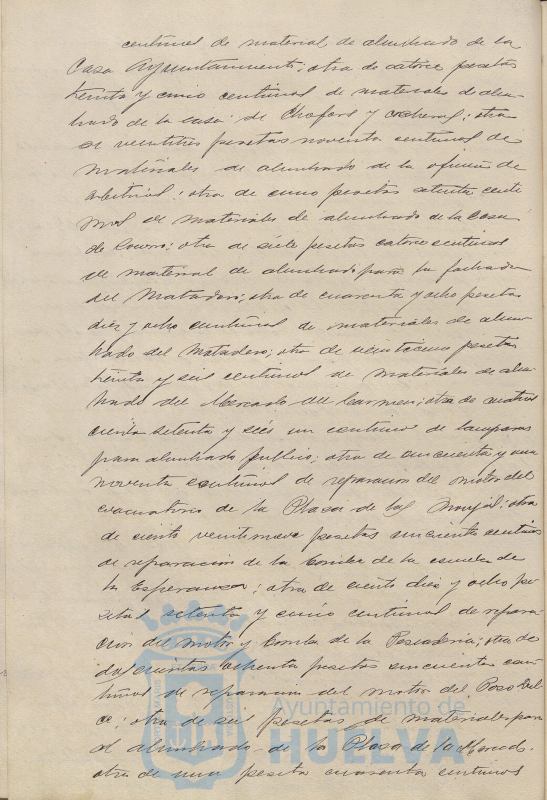 centimos de material de alumbrado de la
Casa Ayuntamiento; otra de catorce pesetas
treinta y cinco centimos de materiales de alum-
brado de la casa de Chofers y cocheras; otra
de veintitres pesetas noventa centimos de
materiales de alumbrado de la oficina de
arbitrios; otra de cinco pesetas setenta centi
mos de materiales de alumbrado de la Casa
de Socorro; otra de siete pesetas catorce centimos
de material de alumbrado para la fachada
del Matadero; otra de cuarenta y ocho pesetas
diez y ocho centimos de materiales de alum-
brado del Matadero; otra de veinticinco pesetas
treinta y seis centimos de materiales de alum-
brado del Mercado del Carmen; otra de cuatro
cientas setenta y seis un centimos de lamparas
para alumbrado publico; otra de cincuenta y una
noventa centimos de reparacion del motor del
evacuatorio de la Plaza de las Monjas; otra
de ciento veintinueve pesetas cincuenta centimos
de reparacion de la bomba de la escuela de
la Esperanza; otra de ciento diez y ocho pe
setas setenta y cinco centimos de repara-
cion del motor y bomba de la Pescaderia; otra de
doscientas ochenta pesetas cincuenta cen
timos de reparacion del motor del Pozo Dul-
ce; otra de seis pesetas de materiales para
el alumbrado de la Plaza de la Merced;
otra de una peseta cuarenta centimos
Ayuntamiento de
HUELVA